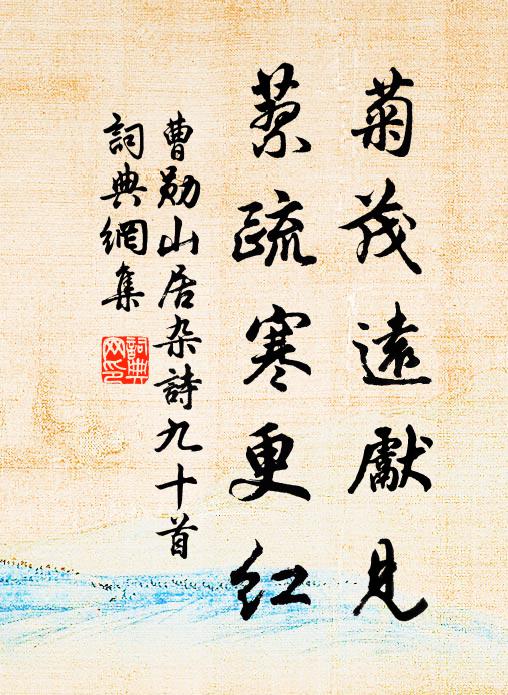 菊茂遠獻見
疏寒更紅
曹勋山居杂詩九十首
詞典網集
詞典网印